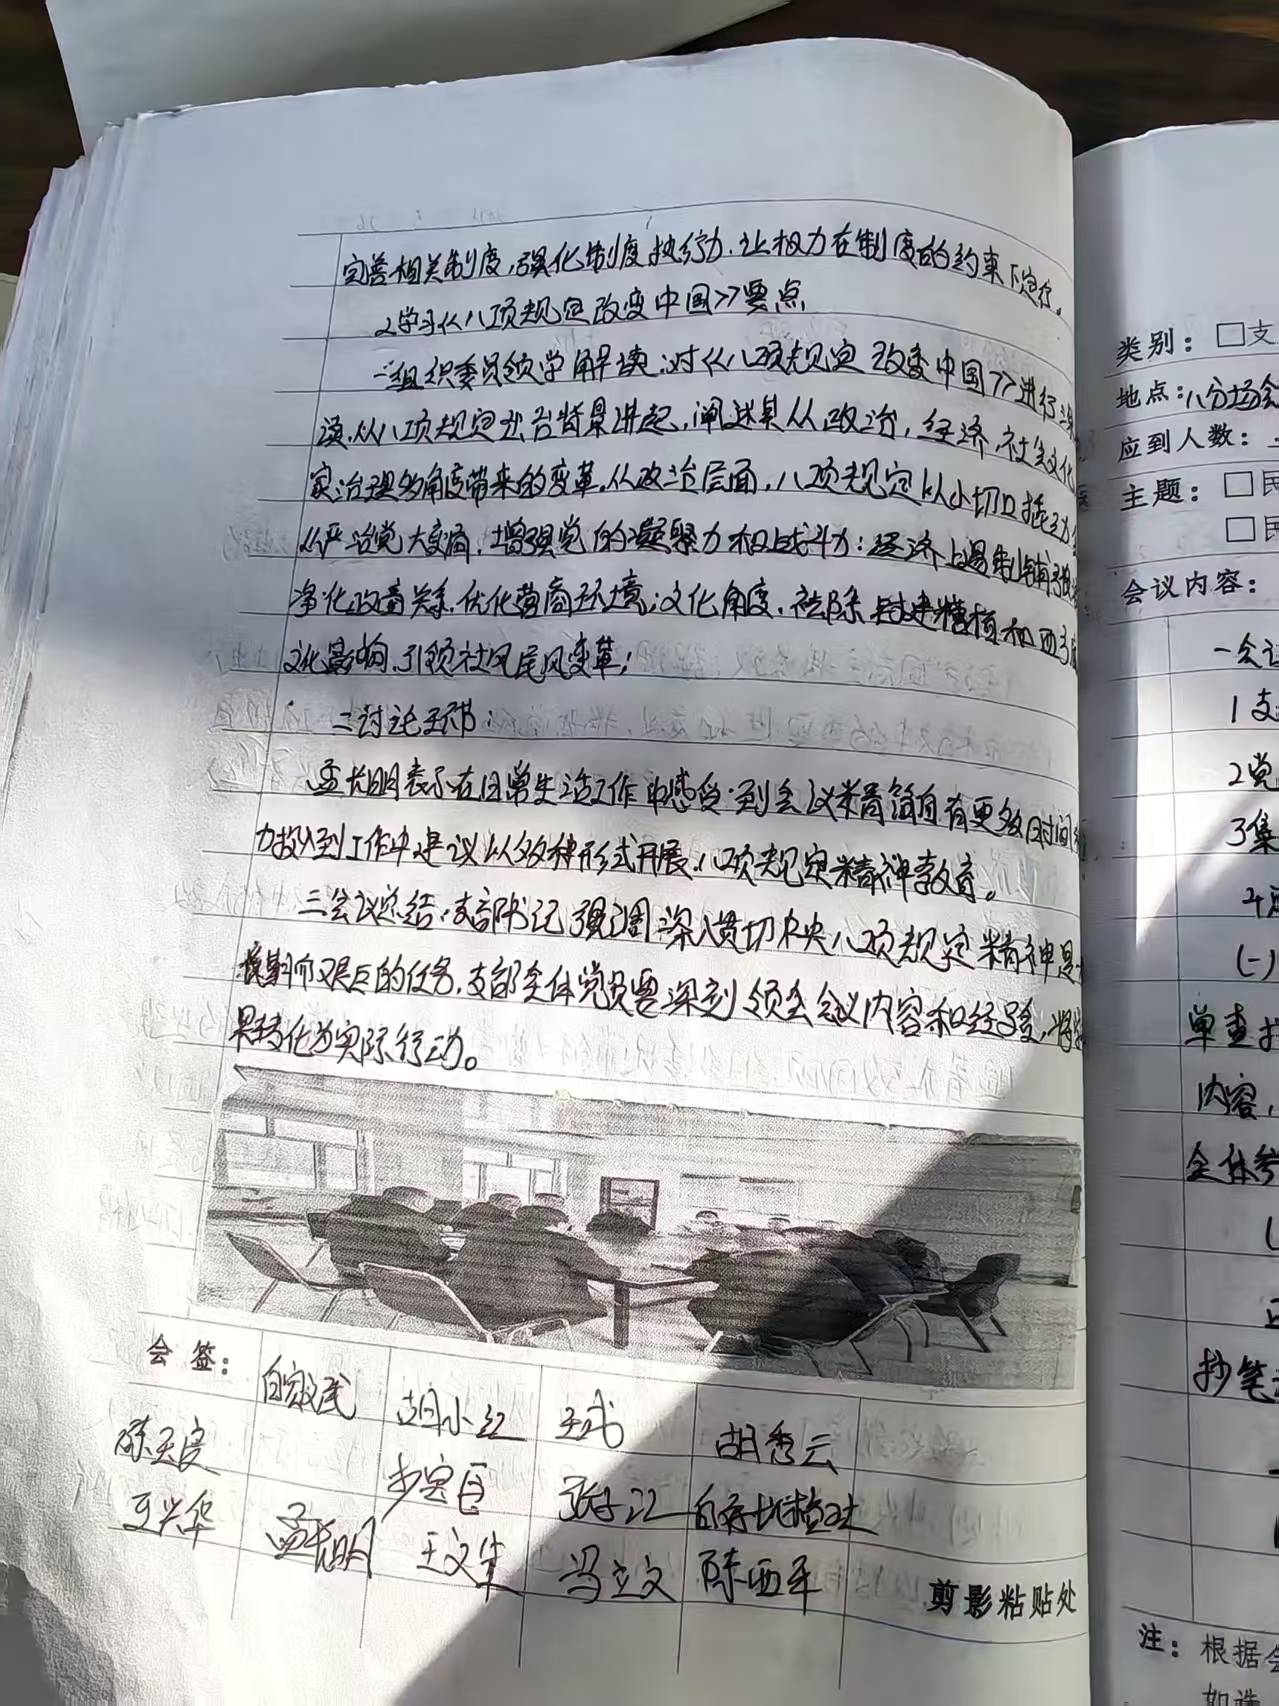 完善相关制度,强化制度执行力.让权力在制度的约束下运行。
2学习《八项规定改变中国》要点
一组织委员领学解读:对《八项规定改变中国》进行
读.从八项规定出台背景讲起,阐述其从政治,经济,社会文化
家治理多角度带来的变革.从政治层面,八项规定以小切口撬动
从严治党大变局,增强党的凝聚力和战斗力:经济上遏制铺张
净化政商关系.优化营商环境;文化角度,祛除封建糟粕和西
文化影响.引领社风民风变革;
二讨论环节:
孟长明表示在日常生活工作中感受到会议精简自有更多时间精
力投入到工作中建议以多种形式开展八项规定精神教育。
三会议总结:支部书记强调深入贯切中央八项规定精神是
长期而艰巨的任务.支部全体党员要深刻领会会议内容和经验,将
果转化为实际行动。
会 签:
胡小红
胡秀云
陈天房
王兴华
孟长明
王文生
冯立文
陈西平
剪影粘贴处
类别: □支
地点:八分场会
应到人数:
主题: □民
□民
会议内容:
一会议
1支
2党
3集
(一)
单查
内容,
全体参
抄笔
注: 根据会
如选